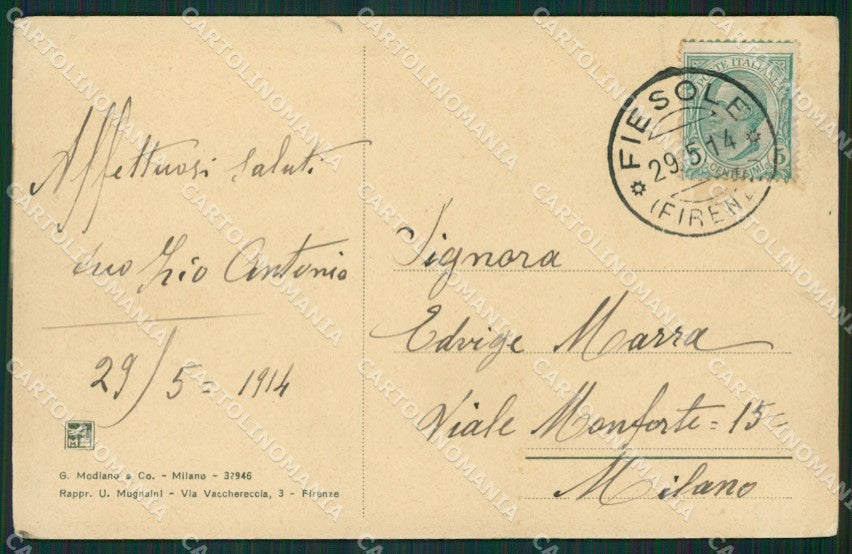 Affettuosi saluti
tuo Zio Antonio
29/5 = 1914
G. Modiano e Co. - Milano - 32946
Rappr. U. Mugnaini - Via Vacchereccia, 3 - Firenze
POSTE ITALIANE
5
FIESOLE
29.5.14
(FIRENZ
Signora
Edvige Marra
Viale Monforte = 15
Milano
CARTOLINOMANIA